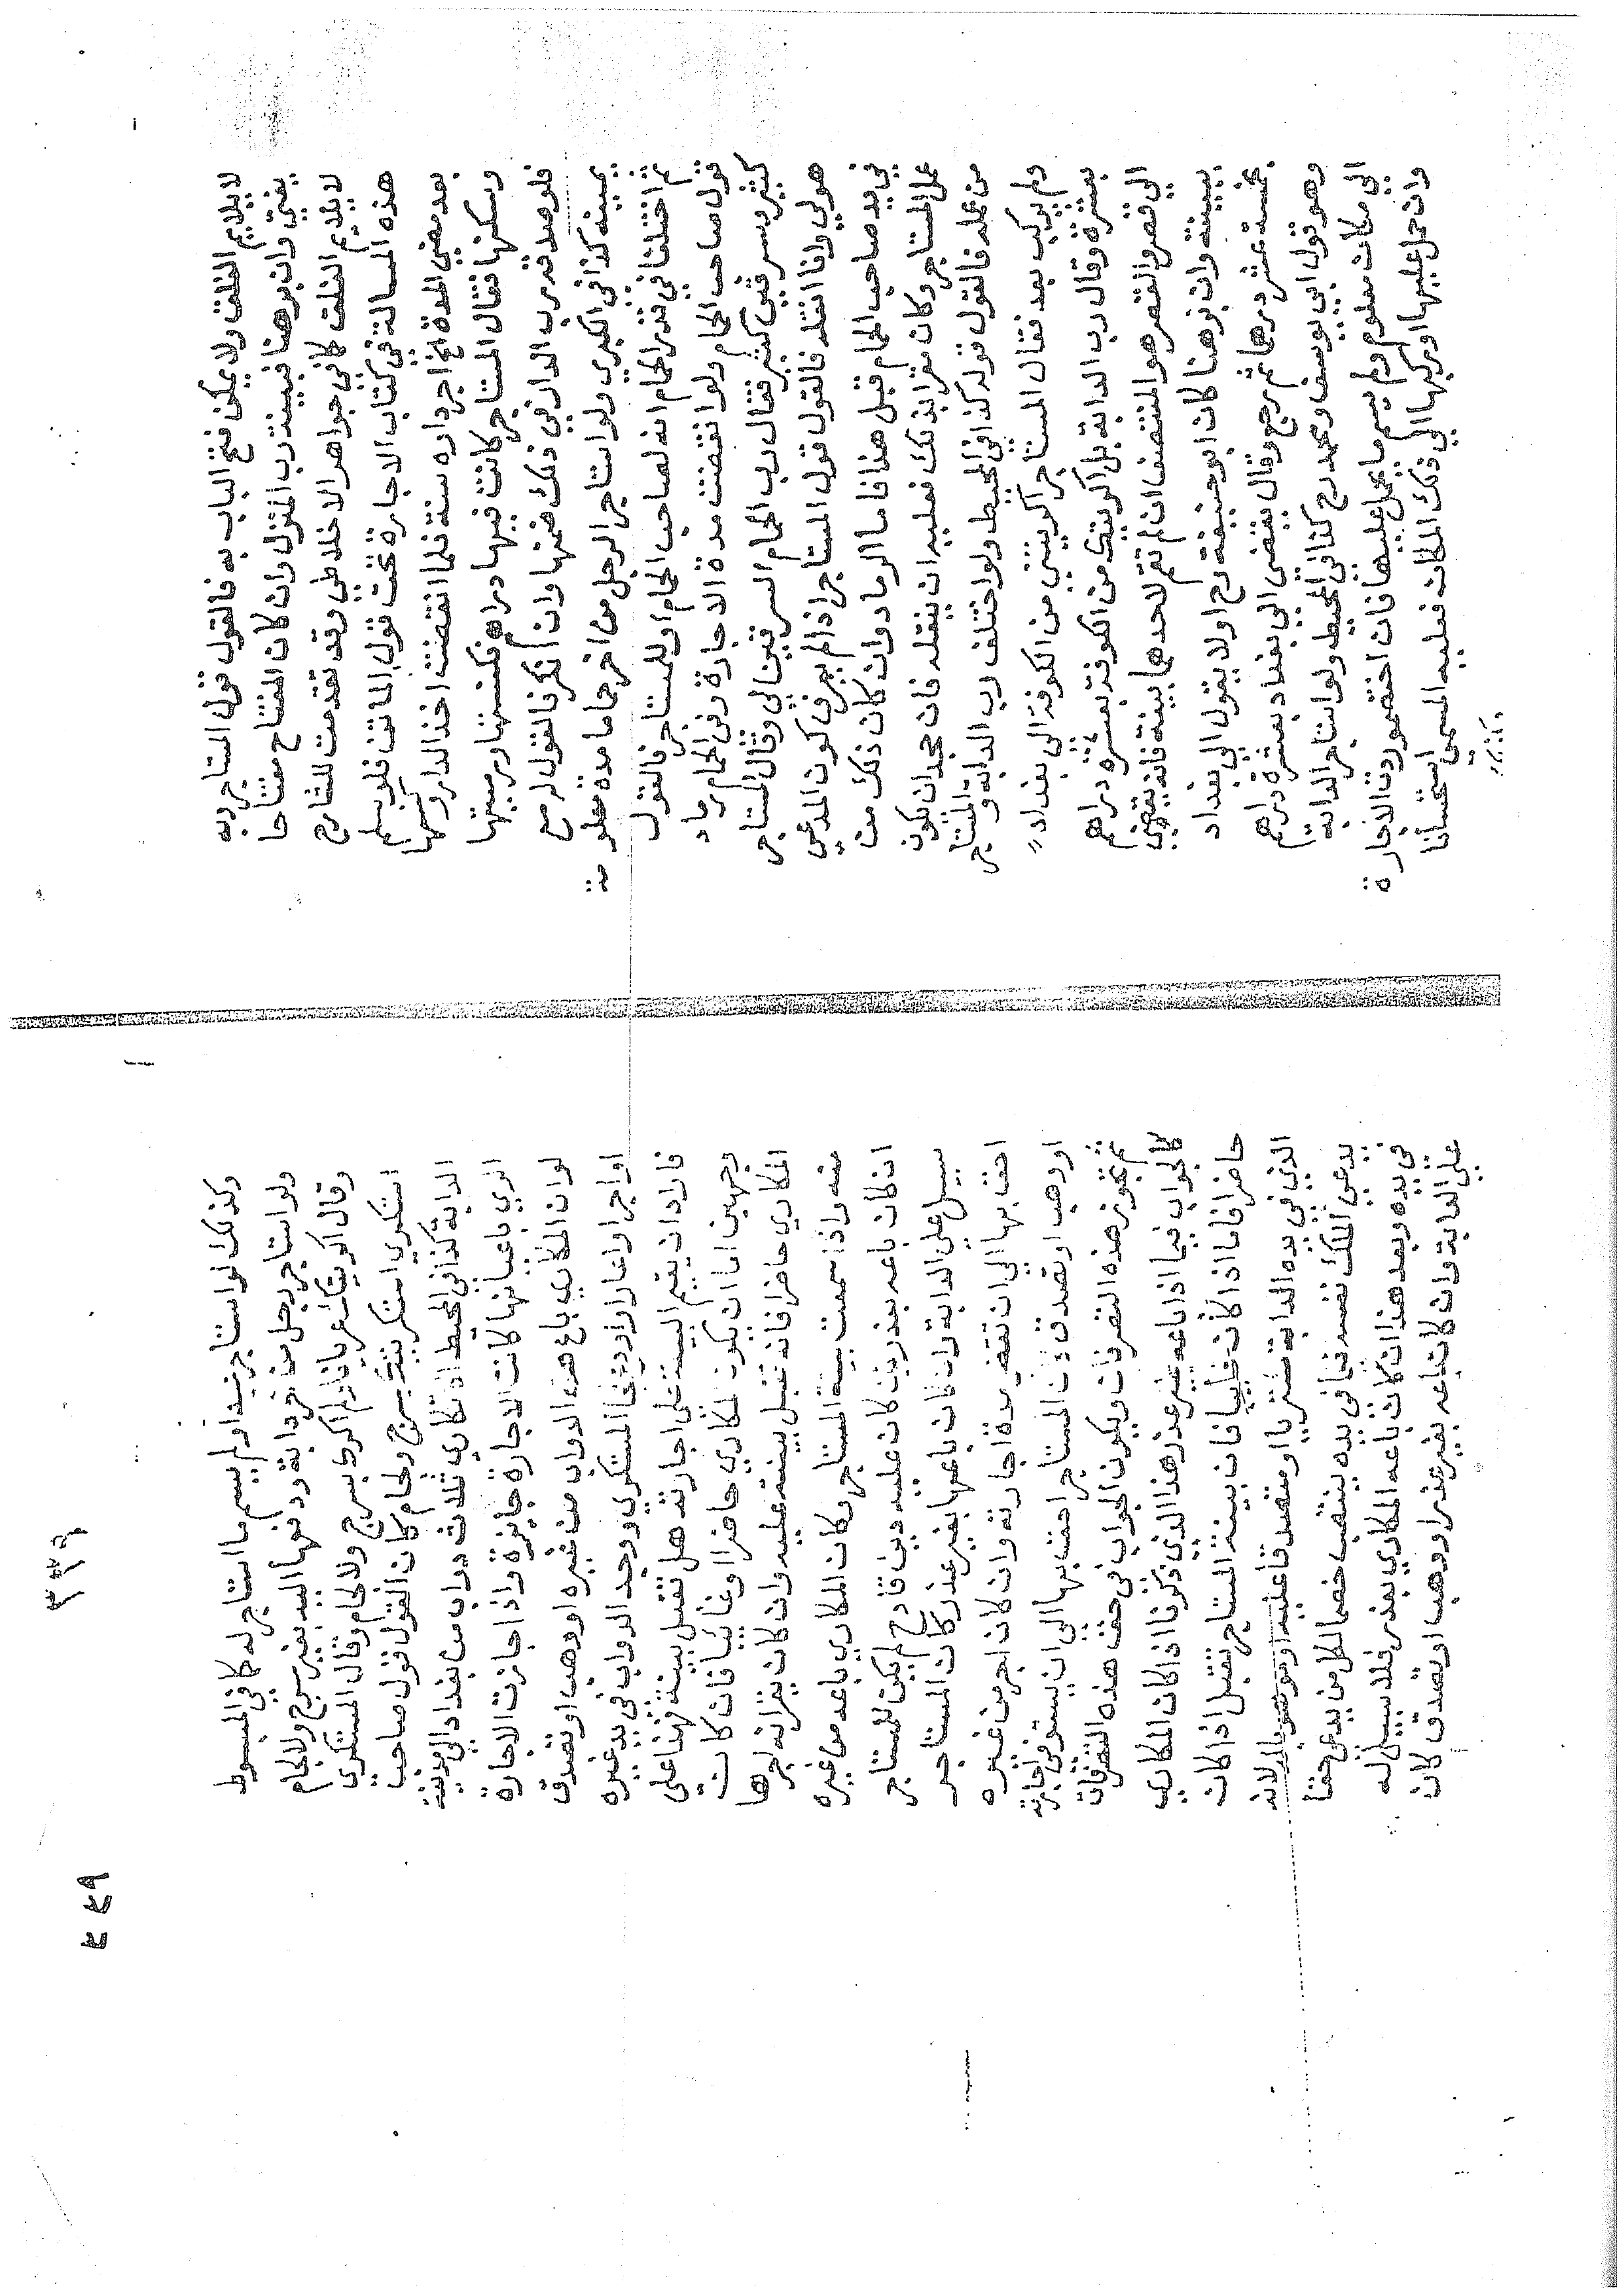 لا يلايم الغلق ولا يمكن فتح الباب به فالقول قول المستاجر وبه
يفتي وان برهنا فبينة رب المنزل وان كان المفتاح مفتاحا
لا يلايم الغلق كما في جواهر الاخلاطي وقد تقدمت للشارح
هذه المسالة في كتاب الاجارة تحت قول الماتن فلو سلم
بعد مضي المدة الخ اجر داره سنة فلما انقضت اخذ الدار وكنسها
وسكنها فقال المستاجر كانت فيها دراهم فكنستها ورميتها
فلو صدقه رب الدار في ذلك ضمنها وان انكر فالقول له مع
يمينه كذا في الكبري ولو استاجر الرجل من اخر حماما مدة معلومة
ثم اختلفا في قدر الحمام انه لصاحب الحمام او للمستاجر فالقول
قول صاحب الحمام ولو انقضت مدة الاجارة وفي الحمام رماد
كثير وسرقين كثير فقال رب الحمام السرقين لي وقال المستاجر
هو لي وانا انقله فالقول قول المستاجر اذا لم يعرف كون المدعي
في يد صاحب الحمام قبل هذا فاما الرماد وان كان ذلك من
عمل المستاجر وكان مقرا بذلك فعليه ان ينقله فان جحد ان يكون
من عمله فالقول قوله كذا في المحيط ولو اختلف رب الدابة والمستاجر
ولم يركب بعد فقال المستاجر اكريتني من الكوفة الي بغداد
بعشرة وقال رب الدابة بل اكريتك من الكوفة بعشرة دراهم
الي قصر والقصر هو المنتصف ان لم تقم لاحدهما بينة فانه يقضي
ببينته وان برهنا كان ابو حنيفة رح اولا يقول الي بغداد
بخمسة عشر درهما ثم رجع وقال يقضي الي بغداد بعشرة دراهم
وهو قول ابي يوسف ومحمد رح كذا في المحيط ولو استاجر الدابة
الي مكان معلوم ولم يسم ما يحمل عليها فان اختصموا ردت الاجارة
وان حمل عليها او ركبها الي ذلك المكان فعليه المسمي استحسانا
وكذلك لو استاجر عبدا ولم يسم ما استاجر له كما في المبسوط
ولو استاجر رجل من اخر دابة ودفعها اليه بغير سرج ولا لجام
وقال اكريتك عريانا ولم اكرك بسرج ولا لجام وقال المستكري
استكريتها بسرج ولجام كان القول قول صاحب
الدابة كذا في المحيط اذا تكاري ثلاث دواب من بغداد الي مدينة
الري باعيانها كانت الاجارة جايزة واذا جازت الاجارة
لو ان المكاري باع هذه الدواب من غيره او وهب او تصدق
او اجر او اعار او اودع فجا المستكري ووجد الدواب في يد غيره
فاراد ان يقيم البينة علي اجارته هل تقبل بينته فهذا علي
وجهين اما ان يكون المكاري حاضرا او غائبا فان كان
المكاري حاضرا فانه تقبل بينته عليه وان كان يقر انه اجرها
منه واذا سمعت بينة المستاجر وكان المكاري باعه من غيره
ان كان باعه بعذر بان كان عليه دين فادح لم يكن للمستاجر
سبيل علي الدابة وان كان باعها بغير عذر كان المستاجر
احق بها الي ان تنقضي مدة اجارته وان كان اجر من غيره
او وهب او تصدق كان المستاجر احق بها الي ان يستوفي اجارته
ثم تجوز هذه التصرفات ويكون الجواب في حق هذه التصرفات
كالجواب فيما اذا باعه بغير عذر هذا الذي ذكرنا اذا كان المكاري
حاضرا فاما اذا كان غايبا فان بينة المستاجر تقبل اذا كان
الذي في يده الدابة مشتريا او متصدقا عليه او موهوبا له لانه
يدعي الملك لنفسه فيما في يده ينتصب خصما لكل من يدعي حقا
في يده وبعد هذا ان كان باعه المكاري بعذر فلا سبيل له
علي الدابة وان كان باعه بغير عذر او وهب او تصدق كان